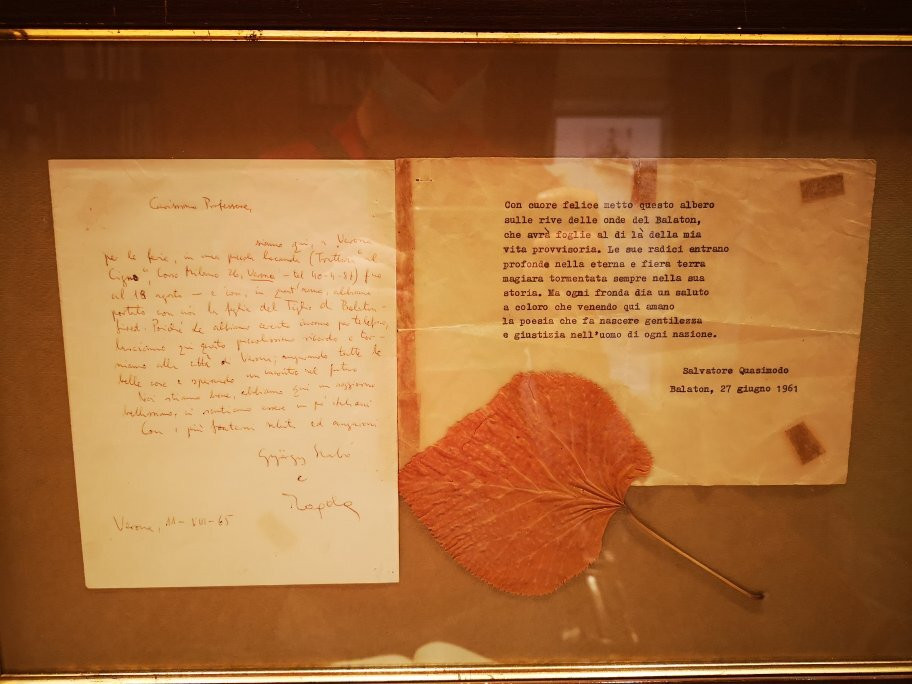 Carissimo Professore,
siamo qui, a Verona
per le ferie, in una piccola locanda (Trattoria "al
Cigno", Corso Milano 26, Verona – tel 40-4-81) fino
al 18 agosto – e con, in quest'anno, abbiamo
portato con noi la foglia del Tiglio di Balaton-
füred. Poiché Le abbiamo cercato invano per telefono,
lasciamo qui questo piccolissimo ricordo e tor-
niamo alla città di Verona, augurando tutte le
belle cose e sperando un incontro nel futuro
Noi stiamo bene, abbiamo qui un soggiorno
bellissimo, ci sentiamo come in po'
Con i più saluti ed auguroni
György Szabó
e
Magda
Verona, 11–VIII–65
Con cuore felice metto questo albero
sulle rive delle onde del Balaton,
che avrà foglie al di là della mia
vita provvisoria. Le sue radici entrano
profonde nella eterna e fiera terra
magiara tormentata sempre nella sua
storia. Ma ogni fronda dia un saluto
a coloro che venendo qui amano
la poesia che fa nascere gentilezza
e giustizia nell'uomo di ogni nazione.
Salvatore Quasimodo
Balaton, 27 giugno 1961